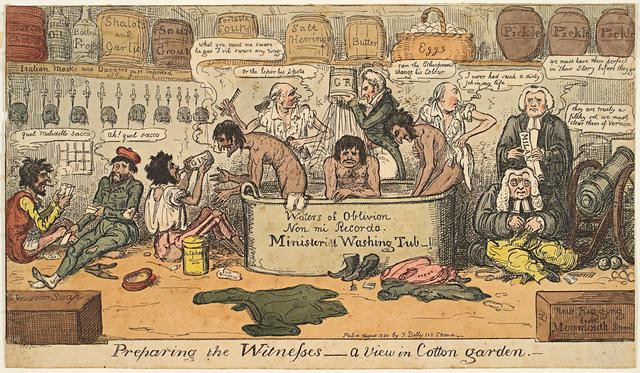 Shalots
and
Garlic
Sour
Crout
Portable
Soup
Salt
Herrings
Butter
Eggs
Pickle
Pickle
Pickle
Italian Masks and Daggers just imported
What you vant me svare
be gar I vil svare any ting
or the lepor his Spots
can the Ethiopean
change his Colour
I never had such a dirty
job in my life
we must have them perfect
in their Story before they go
they are truely a
filthy set we must
clear them of Vermin
qual Maledetto sacco
Ah! qual sacco
G R
Sulphur
Waters of Oblivion
Non mi Recordo
Ministerial Washing Tub
Windsor Soap
New Rigging
from
Monmouth Street
Pub. August 1820 by J. Dolby 299 Strand
Preparing the Witnesses — a View in Cotton garden.—